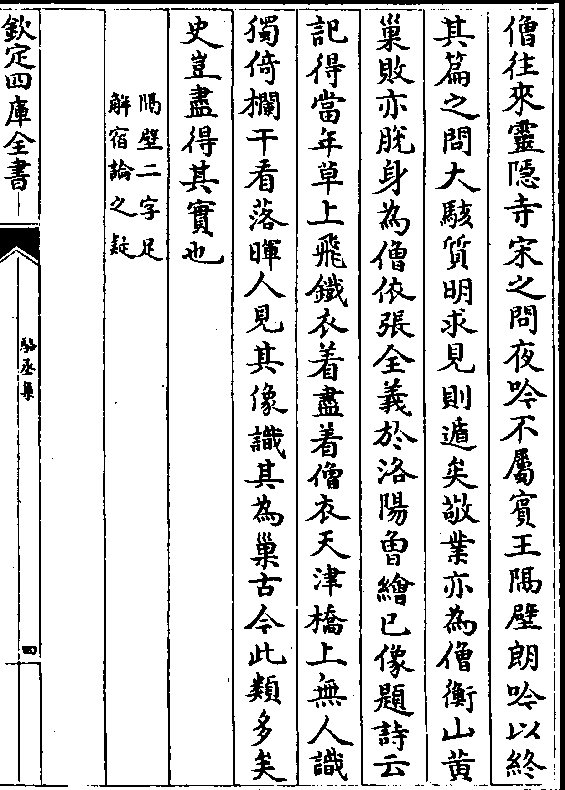 僧往來靈隱寺宋之問夜吟不屬賓王隔壁朗吟以終
其篇之問大駭質明求見則遁矣敬業亦為僧衡山黃
巢敗亦脱身為僧依張全義於洛陽曽繪已像題詩云
記得當年草上飛鐵衣着盡着僧衣天津橋上無人識
獨倚欄干看落暉人見其像識其為巢古今此類多矣
史豈盡得其實也
隔壁二字足
解宿論之疑
欽定四庫全書
駱丞集
四